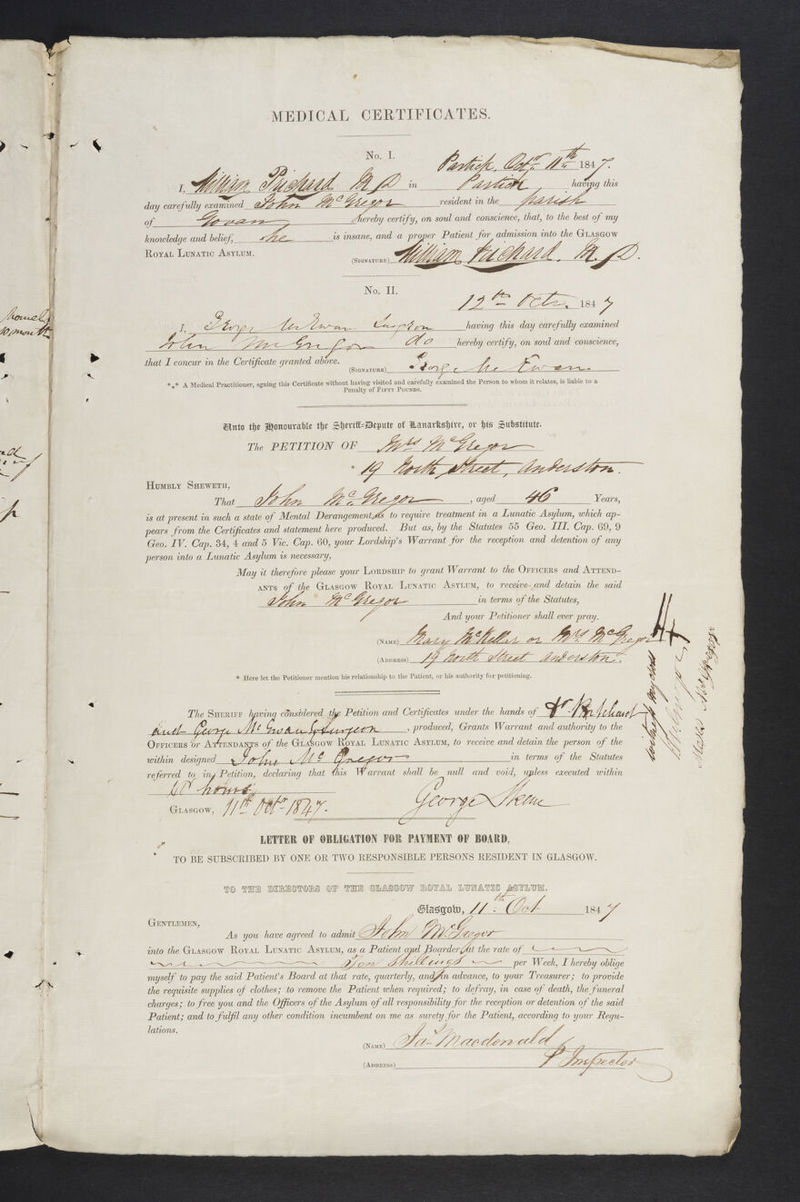 MEDICAL CERTIFICATES.
No. I.
Partick, Octr. 11th 1847.
I, William Pritchard M.D in Partick having this
day carefully examined John McGregor resident in the parish
of Govan hereby certify, on soul and conscience, that, to the best of my
knowledge and belief, he is insane, and a proper Patient for admission into the GLASGOW
ROYAL LUNATIC ASYLUM.
(SIGNATURE) William Pritchard. M.D.
No. II.
12th Octr. 1847
I, George McEwan Surgeon having this day carefully examined
John McGregor do hereby certify, on soul and conscience,
that I concur in the Certificate granted above.
(SIGNATURE) George McEwan
*** A Medical Practitioner, signing this Certificate without having visited and carefully examined the Person to whom it relates, is liable to a
Penalty of FIFTY POUNDS.
Unto the Honourable the Sheriff-Depute of Lanarkshire, or his Substitute.
The PETITION OF Mrs McGregor
* 19 North Street, Anderston.
HUMBLY SHEWETH,
That John McGregor, aged 46 Years,
is at present in such a state of Mental Derangement as to require treatment in a Lunatic Asylum, which ap-
pears from the Certificates and statement here produced. But as, by the Statutes 55 Geo. III. Cap. 69, 9
Geo. IV. Cap. 34, 4 and 5 Vic. Cap. 60, your Lordship's Warrant for the reception and detention of any
person into a Lunatic Asylum is necessary,
May it therefore please your LORDSHIP to grant Warrant to the OFFICERS and ATTEND-
ANTS of the GLASGOW ROYAL LUNATIC ASYLUM, to receive and detain the said
John McGregor in terms of the Statutes,
And your Petitioner shall ever pray.
(NAME) Mary McKellar or Mrs McGregor
(ADDRESS) 19 North Street Anderston.
* Here let the Petitioner mention his relationship to the Patient, or his authority for petitioning.
The SHERIFF having considered the Petition and Certificates under the hands of Dr Pritchard
and George McEwan Surgeon, produced, Grants Warrant and authority to the
OFFICERS or ATTENDANTS of the GLASGOW ROYAL LUNATIC ASYLUM, to receive and detain the person of the
within designed John McGregor in terms of the Statutes
referred to in Petition, declaring that this Warrant shall be null and void, unless executed within
hours
GLASGOW, 11th Octr 1847. George Skene
LETTER OF OBLIGATION FOR PAYMENT OF BOARD,
TO BE SUBSCRIBED BY ONE OR TWO RESPONSIBLE PERSONS RESIDENT IN GLASGOW.
TO THE DIRECTORS OF THE GLASGOW ROYAL LUNATIC ASYLUM.
Glasgow, 11th Oct 1847
GENTLEMEN,
As you have agreed to admit John McGregor
into the GLASGOW ROYAL LUNATIC ASYLUM, as a Patient and Boarder, at the rate of
Ten Shillings per Week, I hereby oblige
myself to pay the said Patient's Board at that rate, quarterly, and in advance, to your Treasurer; to provide
the requisite supplies of clothes; to remove the Patient when required; to defray, in case of death, the funeral
charges; to free you and the Officers of the Asylum of all responsibility for the reception or detention of the said
Patient; and to fulfil any other condition incumbent on me as surety for the Patient, according to your Regu-
lations.
(NAME) Jas Macdonald
(ADDRESS) P Inspector